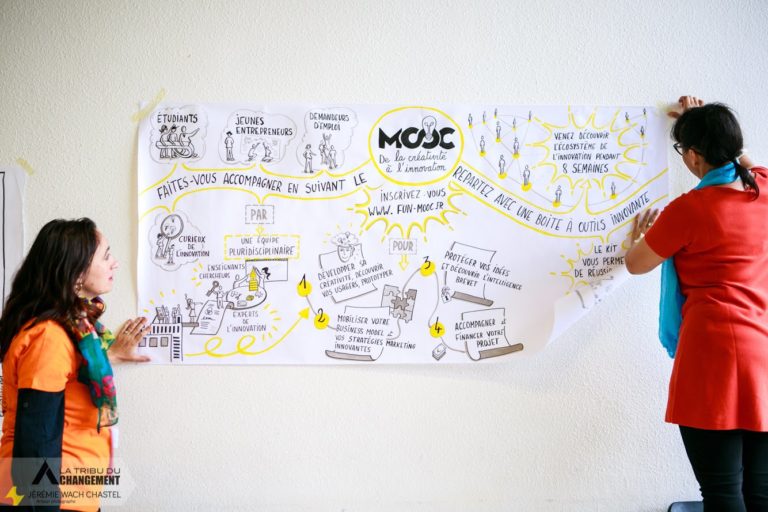 ÉTUDIANTS
JEUNES
ENTREPRENEURS
DEMANDEURS
D'EMPLOI
MOOC
De la créativité
à l'innovation
VENEZ DÉCOUVRIR
L'ÉCOSYSTÈME DE
L'INNOVATION PENDANT
8 SEMAINES
FAITES-VOUS ACCOMPAGNER EN SUIVANT LE
INSCRIVEZ-VOUS
WWW.FUN-MOOC.FR
REPARTEZ AVEC UNE BOÎTE À OUTILS INNOVANTE
CURIEUX
DE
L'INNOVATION
PAR
UNE ÉQUIPE
PLURIDISCIPLINAIRE
ENSEIGNANTS
CHERCHEURS
EXPERTS
DE
L'INNOVATION
POUR
1
DÉVELOPPER SA
CRÉATIVITÉ, DÉCOUVRIR
VOS USAGERS, PROTOTYPER
2
MOBILISER VOTRE
BUSINESS MODEL &
VOS STRATÉGIES MARKETING
INNOVANTES
3
PROTÉGER VOS IDÉES
ET DÉCOUVRIR L'INTELLIGENCE
BREVET
4
ACCOMPAGNER &
FINANCER VOTRE
PROJET
LE KIT
VOUS PERME
DE RÉUSSI
LA TRIBU DU
CHANGEMENT
JÉRÉMIE WACH CHASTEL
Artisan photographe